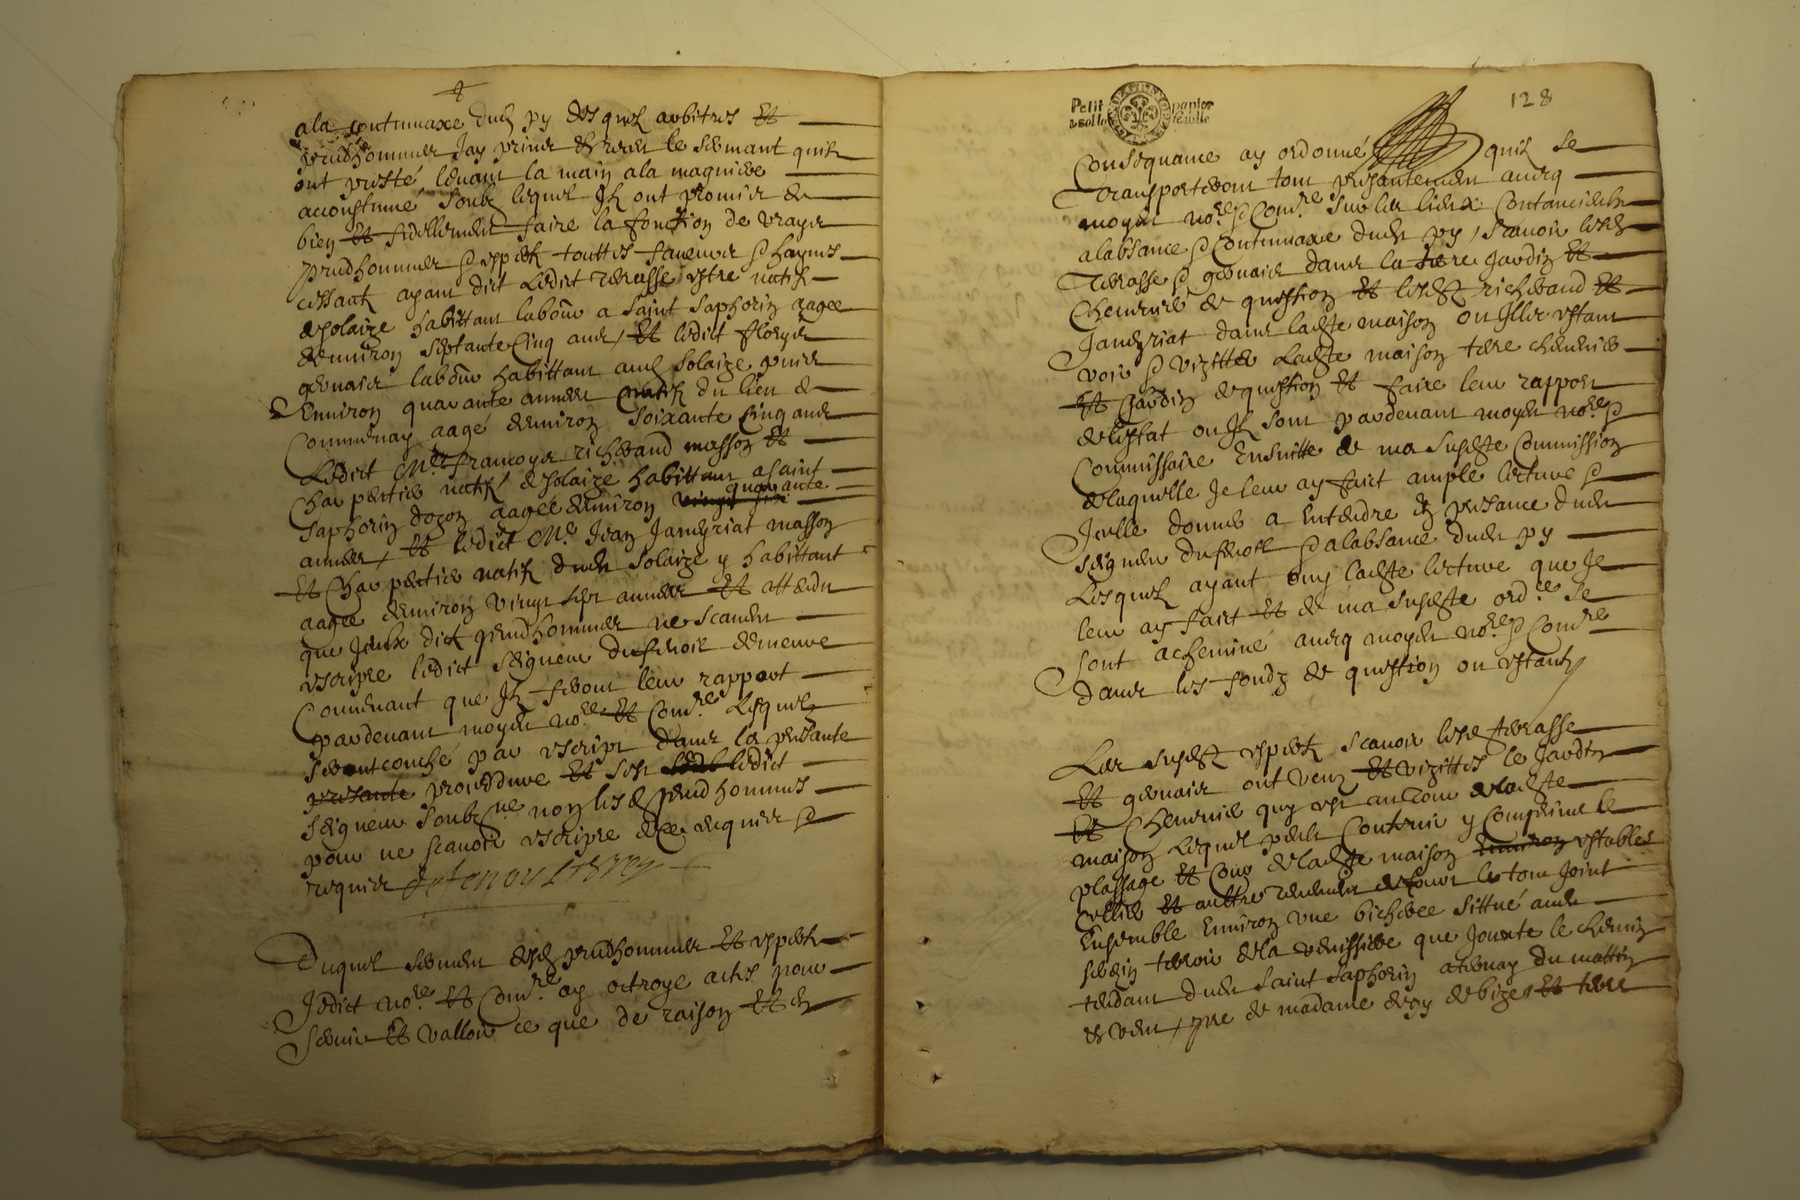 ala contumaxe dud py desquelz arbitres et
prudhommes Jay prins et receu le serment quilz
ont presté levant la main ala magniere
accoustumé soubz lequel Ilz ont promis de
bien et fidellement faire la fonction de vrayes
prudhommes & expertz touttes faveurs & haynes
cessant ayant dict Ledict Terrasse estre natifz
de solaize habittant labour a saint saphorin aagee
denviron septante cinq ans, et ledict
gervais labour habittant aud solaize
Environ quarante années natifz du lieu de
Communay aagé denviron soixante cinq ans
Ledict Me francoys richerand masson et
Charpentier natifz de solaize habittant a saint
quarante
saphorin dozon aagée denviron
années, et ledict Me Jean Janeyriat masson
et Charpentier natifz dud solaize y habittant
aagée denviron vingt sept années et attendu
que Jceulx dictz prudhommes ne scavent
escripre ledict seigneur demeure
Convenant que Ilz feront leur rapport
pardevant moyd nore et Comre Lesquelz
sera couché par escript dans la presante
presante procedure et sest ledict
seigneur soubzne non lesd prudhommes
pour ne scavoir escripre de ce requis &
requier
Duquel serment desd prudhommes et expertz
Jedict nore et Comre ay octroye actes pour
servir et valloir ce que de raison et en
Petit papier
a sol le feuille
128
Consequance ay ordonné quilz se
transporteront tout presantement avecq
moyd nore & Comre sur les lieux Contancieulx
alabsance & Contumaxe dud py, scavoir lesd
Terrasse & gervais dans la terre Jardin et
Chenevier de question et lesd richerand et
Janeyriat dans ladte maison ou Illec estant
voir & vizitter Ladte maison terre chenevier
et Jardin de question et faire leur rapport
de lestat ou Ilz sont pardevant moyd nore &
Commissaire Ensuitte de ma susdte Commission
de laquelle Je leur ay faict ample lecture &
Icelle donner a Entendre en presance dud
seigneur & alabsance dud py
Lesquelz ayant ouy ladte lecture que Je
leur ay faict et de ma susdte ordce se
sont acheminé avecq moyd nore & Comre
dans les fondz de question ou estantz
Les susdz expertz scavoir lesd terrasse
et gervais ont veuz et vizittés le Jardin
et Chenevier quy est autour de ladte
maison Lequel peult Contenir y Comprins le
plassage et Cour de ladte maison Environ estables
Cellier et aultre le tout Joint
Ensemble Environ une bicheree sittué aud
terroir de la que Jouxte le chemin
tendant dud saint saphorin a ternay du mattin
et vent, pre de madame et terre